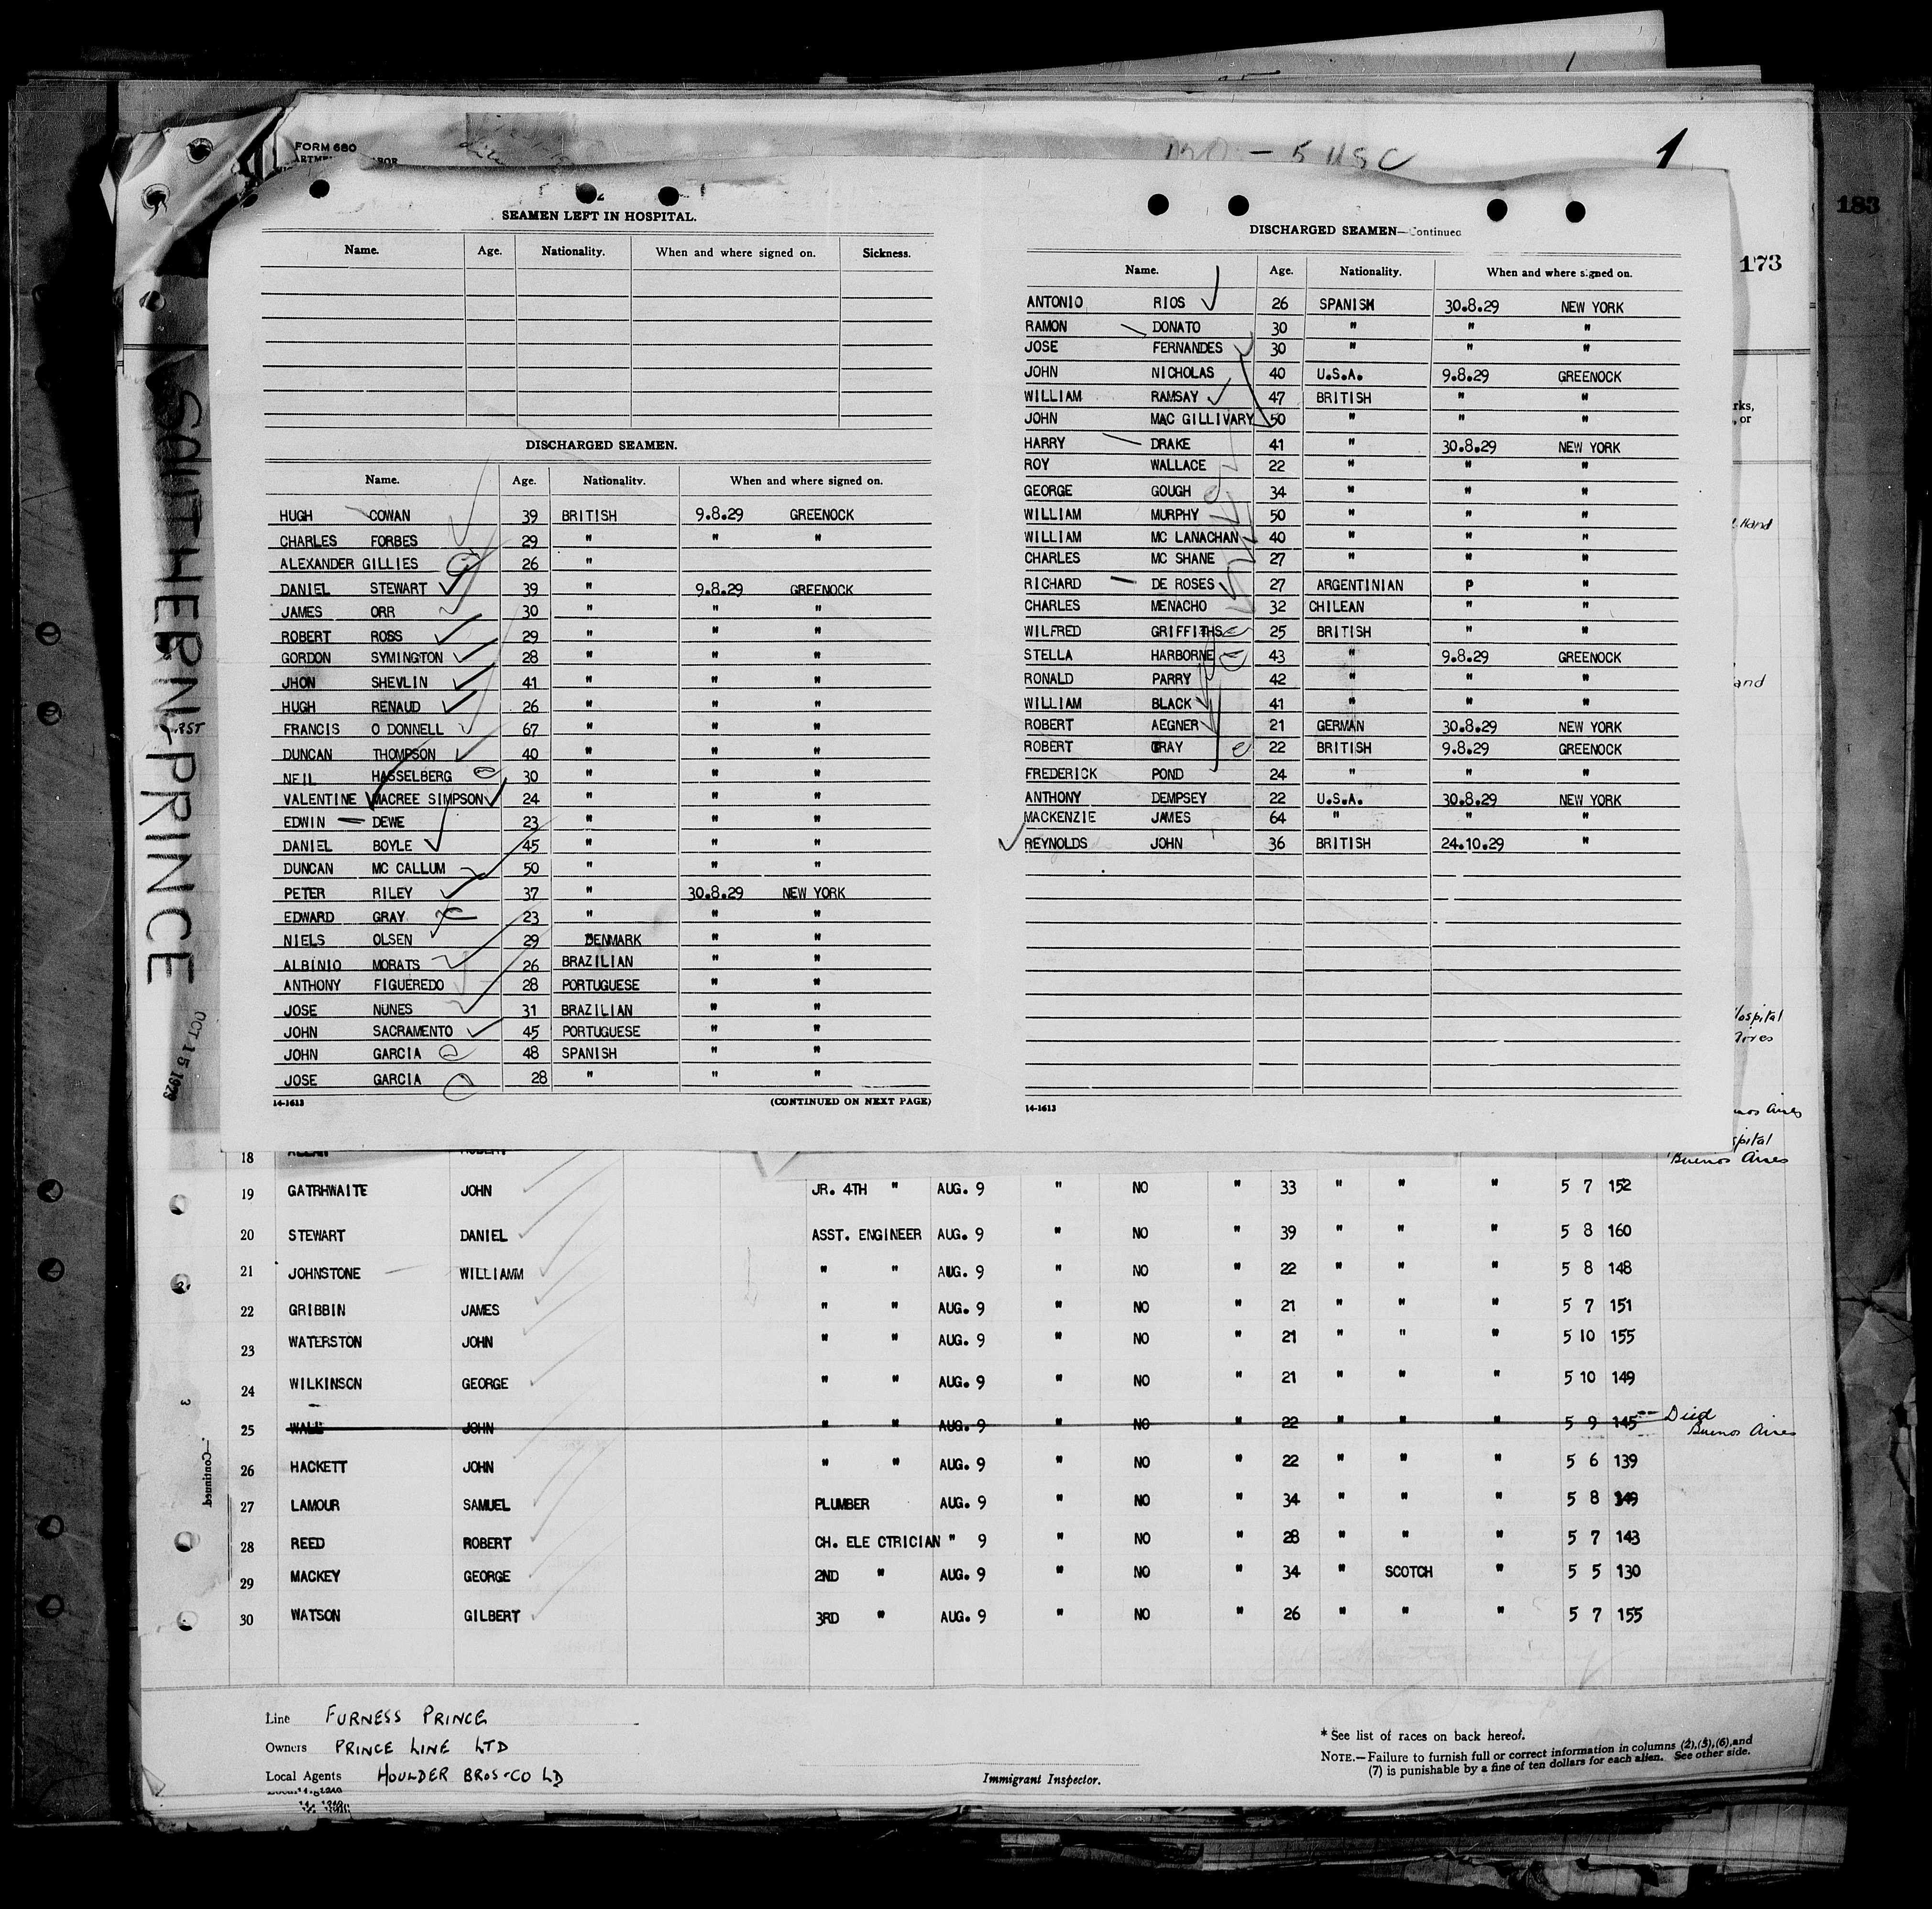 FORM 680
5 USC
1
183
173
SOUTHERN PRINCE
OCT 15 1929
SEAMEN LEFT IN HOSPITAL.
Name. Age. Nationality. When and where signed on. Sickness.
DISCHARGED SEAMEN.
Name. Age. Nationality. When and where signed on.
HUGH COWAN 39 BRITISH 9.8.29 GREENOCK
CHARLES FORBES 29 " " "
ALEXANDER GILLIES 26 "
DANIEL STEWART 39 " 9.8.29 GREENOCK
JAMES ORR 30 " " "
ROBERT ROSS 29 " " "
GORDON SYMINGTON 28 " " "
JHON SHEVLIN 41 " " "
HUGH RENAUD 26 " " "
FRANCIS O DONNELL 67 " " "
DUNCAN THOMPSON 40 " " "
NEIL HASSELBERG 30 " " "
VALENTINE MACREE SIMPSON 24 " " "
EDWIN DEWE 23 " " "
DANIEL BOYLE 45 " " "
DUNCAN MC CALLUM 50 " " "
PETER RILEY 37 " 30.8.29 NEW YORK
EDWARD GRAY 23 " " "
NIELS OLSEN 29 DENMARK " "
ALBINIO MORATS 26 BRAZILIAN " "
ANTHONY FIGUEREDO 28 PORTUGUESE " "
JOSE NUNES 31 BRAZILIAN " "
JOHN SACRAMENTO 45 PORTUGUESE " "
JOHN GARCIA 48 SPANISH " "
JOSE GARCIA 28 " " "
14-1613 (CONTINUED ON NEXT PAGE)
DISCHARGED SEAMEN—Continued
Name. Age. Nationality. When and where signed on.
ANTONIO RIOS 26 SPANISH 30.8.29 NEW YORK
RAMON DONATO 30 " " "
JOSE FERNANDES 30 " " "
JOHN NICHOLAS 40 U.S.A. 9.8.29 GREENOCK
WILLIAM RAMSAY 47 BRITISH " "
JOHN MAC GILLIVARY 50 " " "
HARRY DRAKE 41 " 30.8.29 NEW YORK
ROY WALLACE 22 " " "
GEORGE GOUGH 34 " " "
WILLIAM MURPHY 50 " " "
WILLIAM MC LANACHAN 40 " " "
CHARLES MC SHANE 27 " " "
RICHARD DE ROSES 27 ARGENTINIAN P "
CHARLES MENACHO 32 CHILEAN " "
WILFRED GRIFFITHS 25 BRITISH " "
STELLA HARBORNE 43 " 9.8.29 GREENOCK
RONALD PARRY 42 " " "
WILLIAM BLACK 41 " " "
ROBERT AEGNER 21 GERMAN 30.8.29 NEW YORK
ROBERT GRAY 22 BRITISH 9.8.29 GREENOCK
FREDERICK POND 24 " " "
ANTHONY DEMPSEY 22 U.S.A. 30.8.29 NEW YORK
MACKENZIE JAMES 64 " " "
REYNOLDS JOHN 36 BRITISH 24.10.29 "
14-1613
rks,
, or
Hand
and
Hospital
Aires
Buenos Aires
18
19 GATRHWAITE JOHN JR. 4TH " AUG. 9 " NO " 33 " " " 5 7 152
20 STEWART DANIEL ASST. ENGINEER AUG. 9 " NO " 39 " " " 5 8 160
21 JOHNSTONE WILLIAMM " " AUG. 9 " NO " 22 " " " 5 8 148
22 GRIBBIN JAMES " " AUG. 9 " NO " 21 " " " 5 7 151
23 WATERSTON JOHN " " AUG. 9 " NO " 21 " " " 5 10 155
24 WILKINSON GEORGE " " AUG. 9 " NO " 21 " " " 5 10 149
25 WALL JOHN " " AUG. 9 " NO " 22 " " " 5 9 145 Died
Buenos Aires
26 HACKETT JOHN " " AUG. 9 " NO " 22 " " " 5 6 139
27 LAMOUR SAMUEL PLUMBER AUG. 9 " NO " 34 " " " 5 8 149
28 REED ROBERT CH. ELE CTRICIAN " 9 " NO " 28 " " " 5 7 143
29 MACKEY GEORGE 2ND " AUG. 9 " NO " 34 " SCOTCH " 5 5 130
30 WATSON GILBERT 3RD " AUG. 9 " NO " 26 " " " 5 7 155
—Continued
3
Line FURNESS PRINCE
Owners PRINCE LINE LTD
Local Agents HOULDER BROS & CO LD
Immigrant Inspector.
* See list of races on back hereof.
NOTE.—Failure to furnish full or correct information in columns (2),(5),(6),and
(7) is punishable by a fine of ten dollars for each alien. See other side.